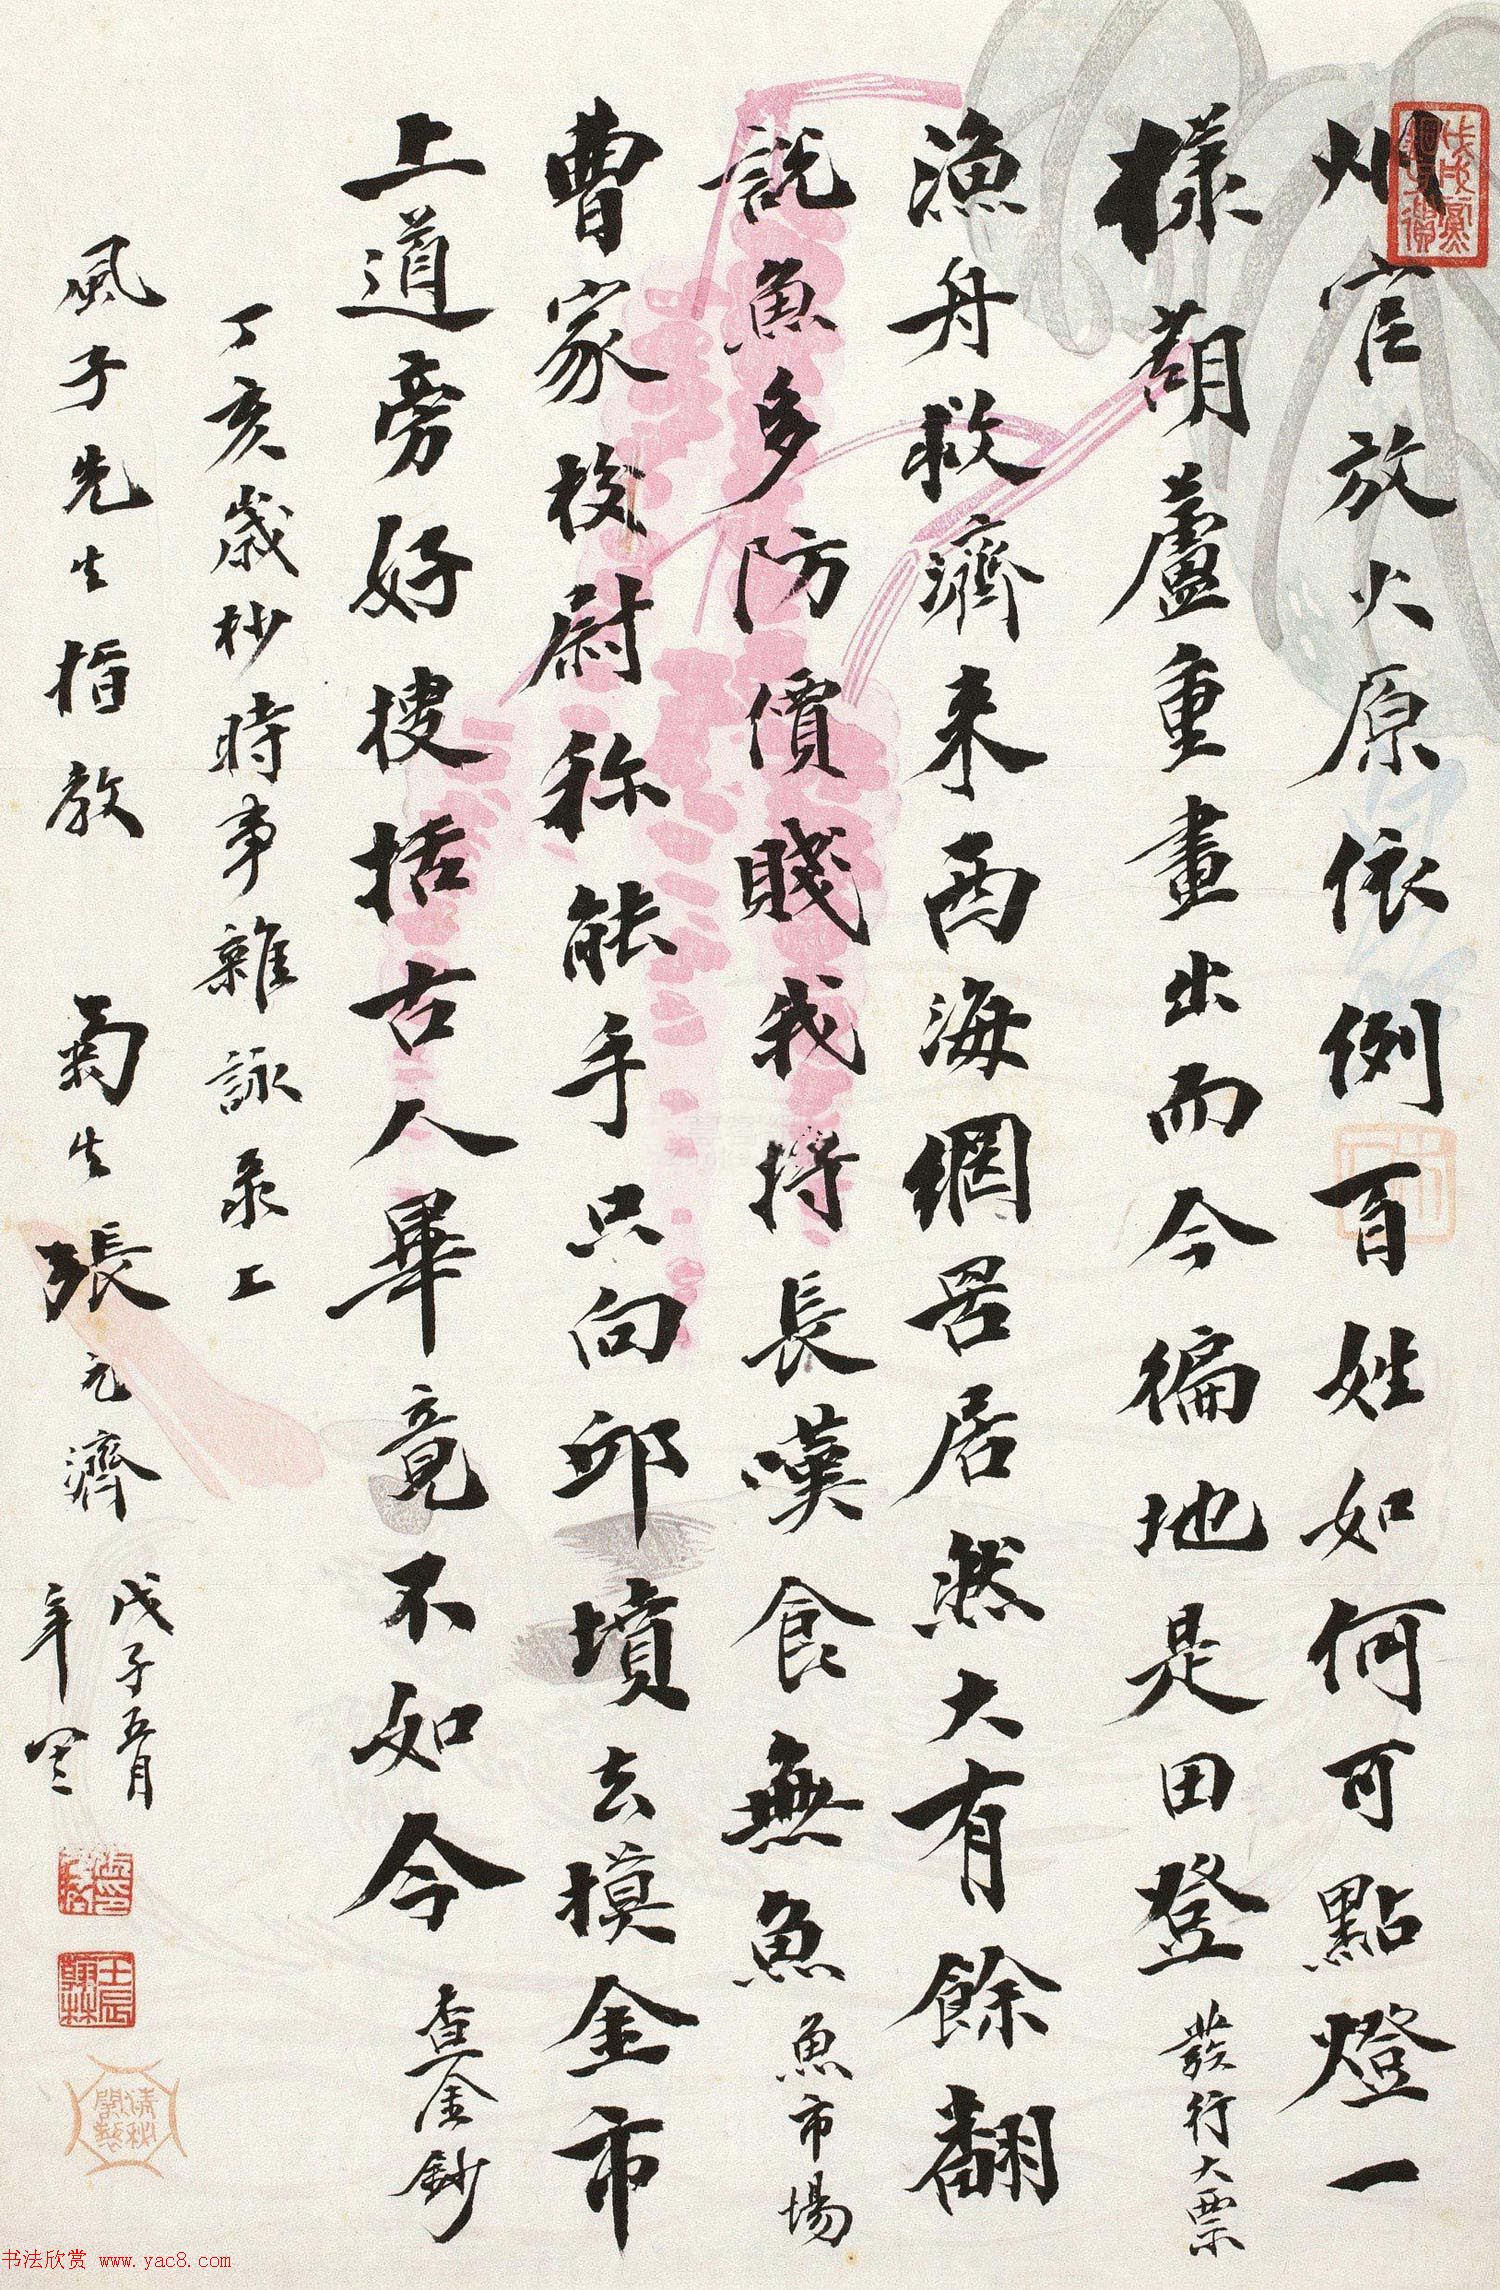 州官放火原依例百姓如何可點燈一
樣葫蘆重畫出而今徧地是田登 發行大票
漁舟救濟来西海網罟居然大有餘翻
説魚多防價賤我持長嘆食無魚 魚市場
曹家校尉称能手只向邱墳去摸金市
上道旁好搜括古人畢竟不如今 查金鈔
丁亥歲杪時事雜詠录工
風子先生指教 菊生張元濟 戊子五月
年
壬辰翰林
书法欣赏 www.yac8.com